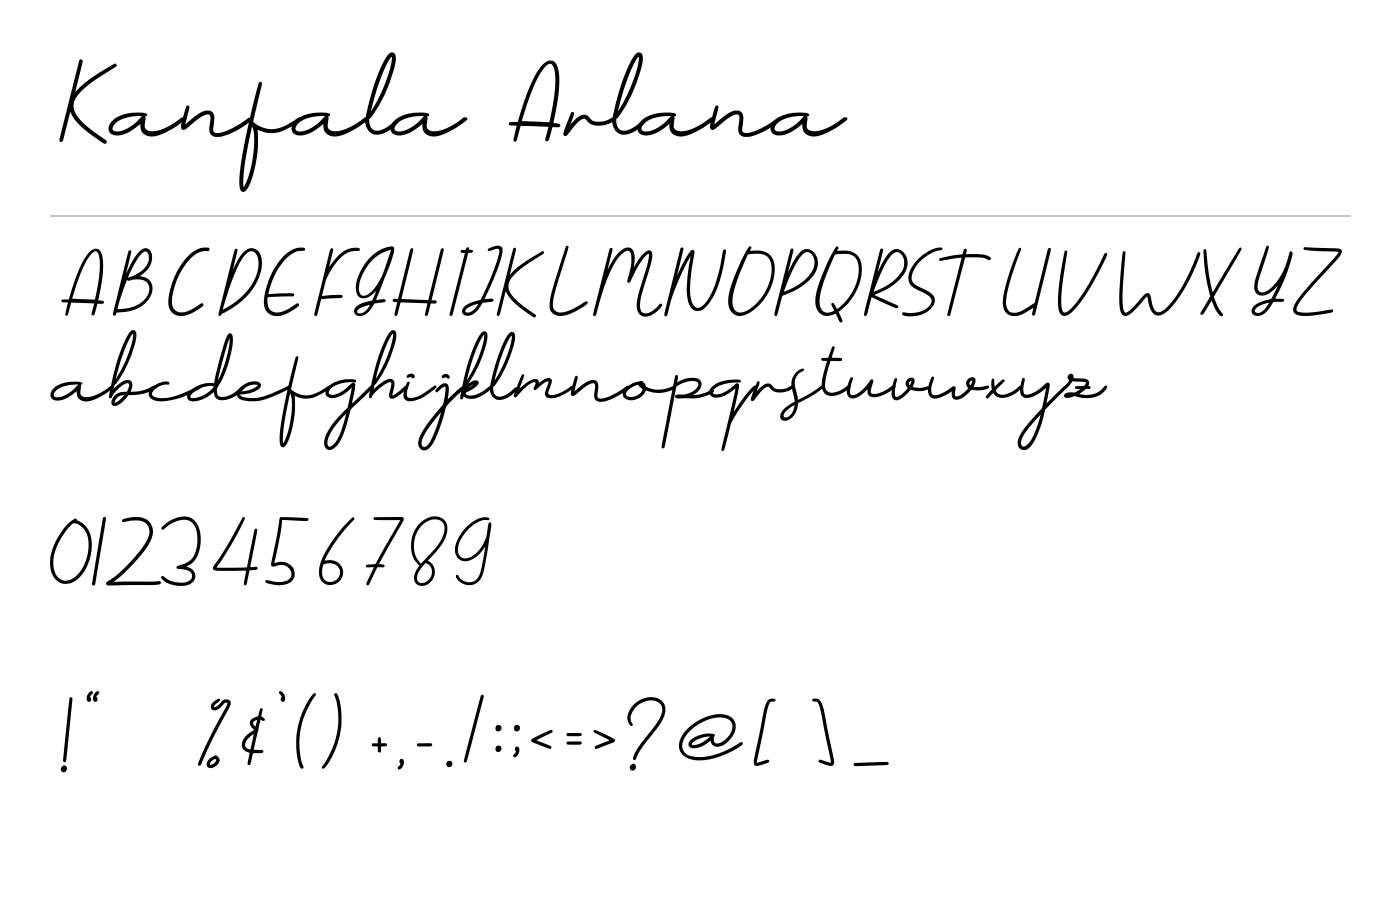 Kanfala Arlana
ABCDEFGHIJKLMNOPQRSTUVWXYZ
abcdefghijklmnopqrstuvwxyz
0123456789
!“ %&'() +,-./:;<=>?@[ ]_